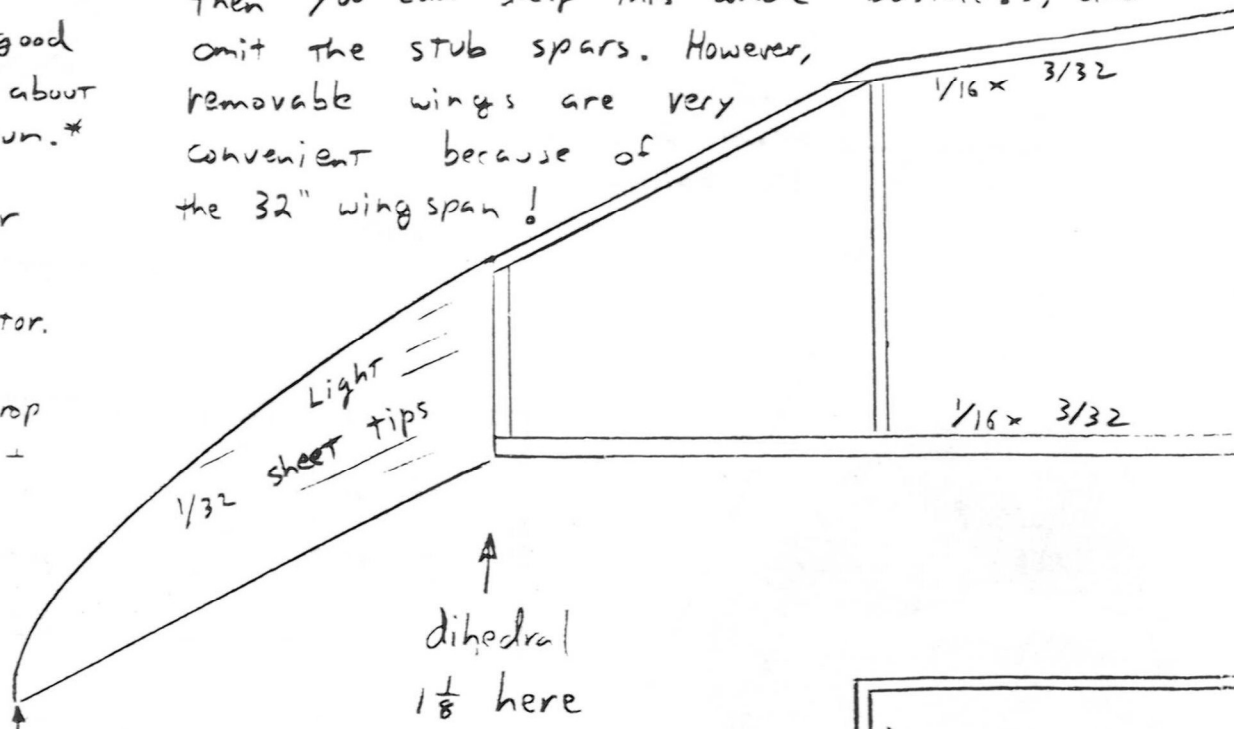 good
about
omit the stub spars. However,
removable wings are very
convenient because of
the 32" wing span !
1/16 x 3/32
Light
1/32 sheet tips
1/16 x 3/32
dihedral
1 1/8 here